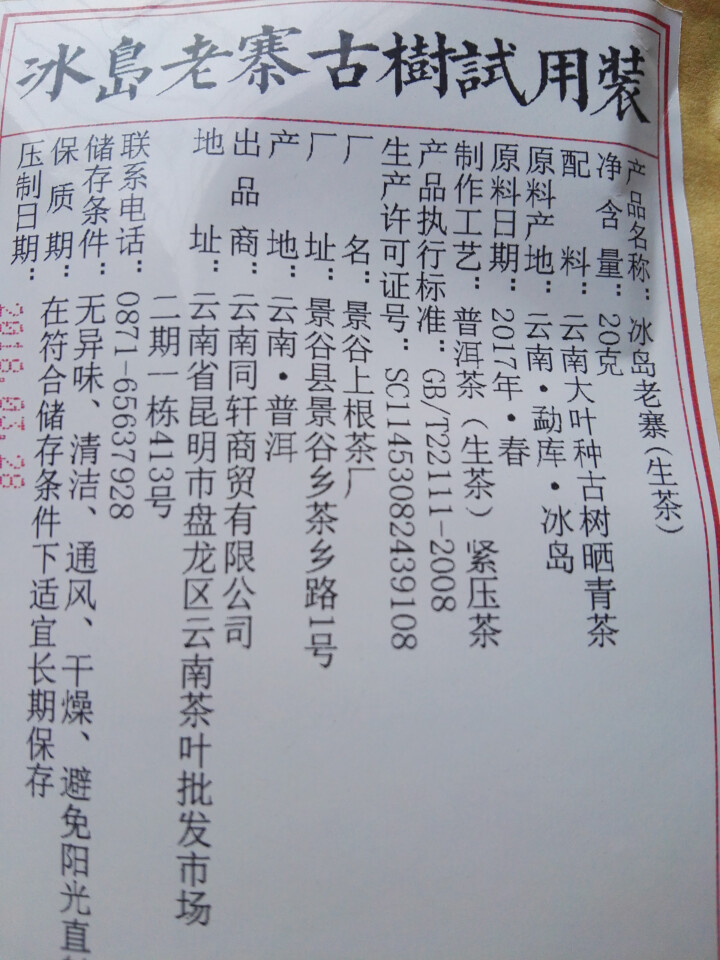 冰島老寨古樹試用装
产品名称：冰岛老寨（生茶）
净含量：20克
配料：云南大叶种古树晒青茶
原料产地：云南·勐库·冰岛
原料日期：2017年·春
制作工艺：普洱茶（生茶）紧压茶
产品执行标准：GB/T22111-2008
生产许可证号：SC11453082439108
厂名：景谷上根茶厂
厂址：景谷县景谷乡茶乡路1号
产地：云南·普洱
出品商：云南同轩商贸有限公司
地址：云南省昆明市盘龙区云南茶叶批发市场
二期一栋413号
联系电话：0871-65637928
储存条件：无异味、清洁、通风、干燥、避免阳光直
保质期：在符合储存条件下适宜长期保存
压制日期：2018.03.28